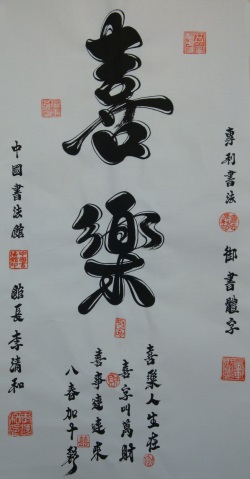 喜樂
專利書法 御書體字
喜樂人生在
喜字叫萬財
喜事連連來
八春加千
中國書法館 館長李清和